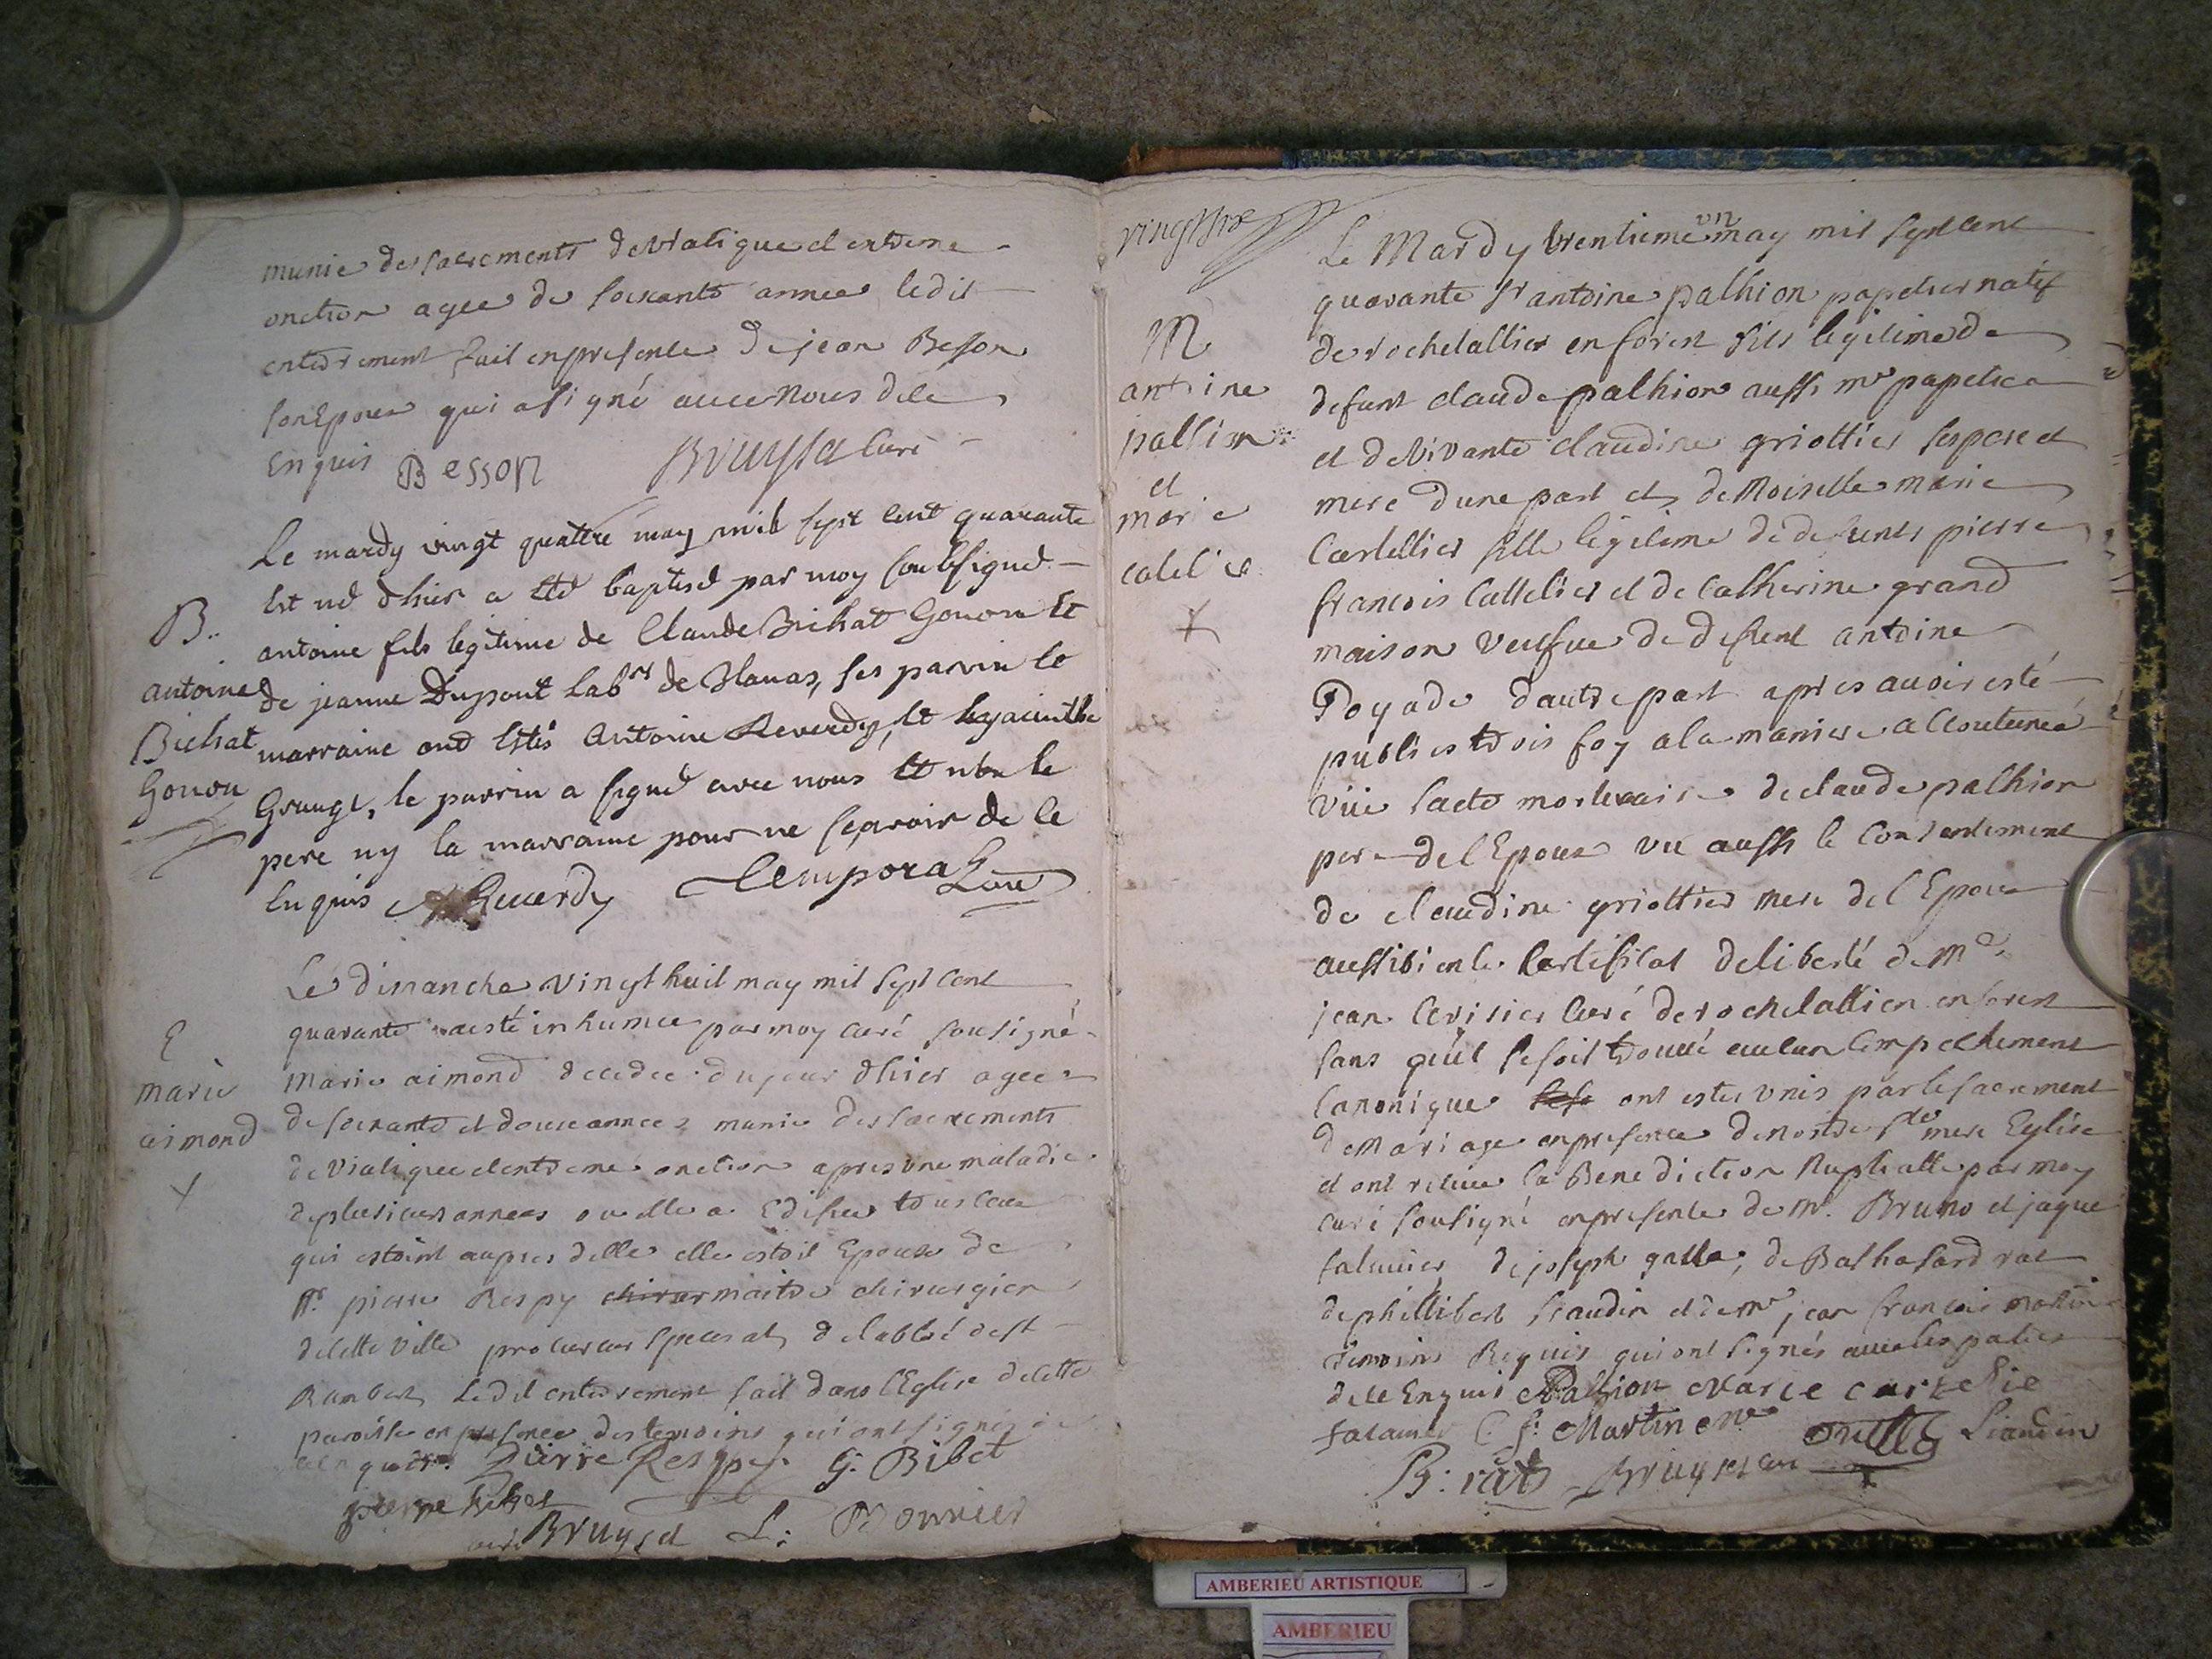 munie des sacrements de viatique et extreme
onction agee de soixante annees ledit
enterrement fait en presence de jean Besson
son Epoux qui a signé avec nous de ce
Enquis Besson Bruyset Curé
Le mardy vingt quattre may mil sept cent quarante
B..
Est né d'hier a été baptisé par moy soubsigné
antoine fils legitime de Claude Bichat Gonon Et
antoine
de jeanne Dupont Labrs de, ses parrin Et
Bichat
marraine ont Estés Antoine Reverdy, et hyacinthe
Gonon
Grange, le parrin a signé avec nous Et non le
pere ny la marraine pour ne sçavoir de ce
Enquis A Reverdy Temporal
Le dimanche vingt huit may mil sept cent
E
quarante a esté inhumee par moy curé sousigné
marie
Marie aimond decedee du jour d'hier agee
aimond
de soixante et douze annees munie des sacrements
de viatique et extreme onction apres une maladie
de plusieurs annees ou elle a Edifiee tous ceux
qui estoint aupres delle elle estoit Epouse de
Sr pierre Respy chirur maitre chirurgien
de cette ville procureur special de labbé de st
Rambert Le dit enterrement fait dans lEglise de cette
paroisse en presence des temoins qui ont signés de
ce enquis Pierre Respy G. Bibet
curé Bruyset L:
vingt six
Le Mardy trentieme un may mil sept cent
quarante Sr antoine palhion papetier natif
M
de rochetallier en forest fils legitime de
antoine
defunt claude palhion aussi me papetier
pallion
et de vivante claudine griottier ses pere et
et
mere dune part et deMoiselle marie
marie
Cartellier fille legitime de defunts pierre
catelier
francois Cattelier et de Catherine grand
maison veufve de defunt antoine
Poyade d'autre part apres avoir esté
publies trois foy a la maniere accoutumé
vüe lacte mortuaire de claude palhion
pere de lEpoux vu aussi le Consentement
de claudine griottier mere de lEpoux
aussi bien le Certificat de liberté de Mr
jean Cerisier Curé de rochetallier en forest
sans qu'il se soit trouvé aucun Empechement
Canonique ont estes unis par le sacrement
de Mariage en presence de nostre Ste mere Eglise
et ont receue la Benediction Nuptialle par moy
curé sousigné en presence de Mr. Bruno et jaque
falavier, de joseph galle, de Balthasard rat
de phillibert liaudin et de me jean francois martin
temoins Requis qui ont signés avec les parties
de ce Enquis A Palhion Marie cartelie
J. f. Martin ne Liaudin
B: rat Bruyset curé
AMBERIEU ARTISTIQUE
AMBERIEU